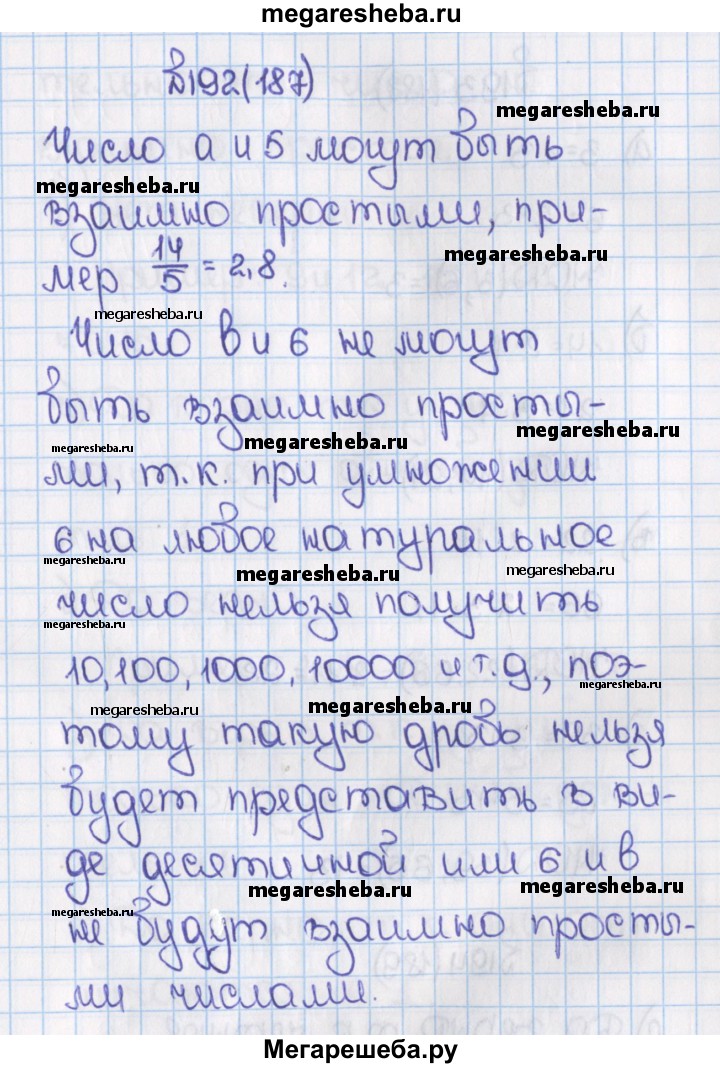 megaresheba.ru
№192(187)
megaresheba.ru
Число а и 5 могут быть
megaresheba.ru
взаимно простыми, при-
megaresheba.ru
мер 14/5 = 2,8.
megaresheba.ru
Число в и 6 не могут
быть взаимно просты-
megaresheba.ru
megaresheba.ru
megaresheba.ru
ми, т.к. при умножении
6 на любое натуральное
megaresheba.ru
megaresheba.ru
megaresheba.ru
число нельзя получить
megaresheba.ru
10,100,1000,10000 и т.д., поэ-
megaresheba.ru
megaresheba.ru
megaresheba.ru
тому такую дробь нельзя
будет представить в ви-
де десятичной или 6 и в
megaresheba.ru
megaresheba.ru
megaresheba.ru
не будут взаимно просты-
ми числами.
Мегарешеба.ру